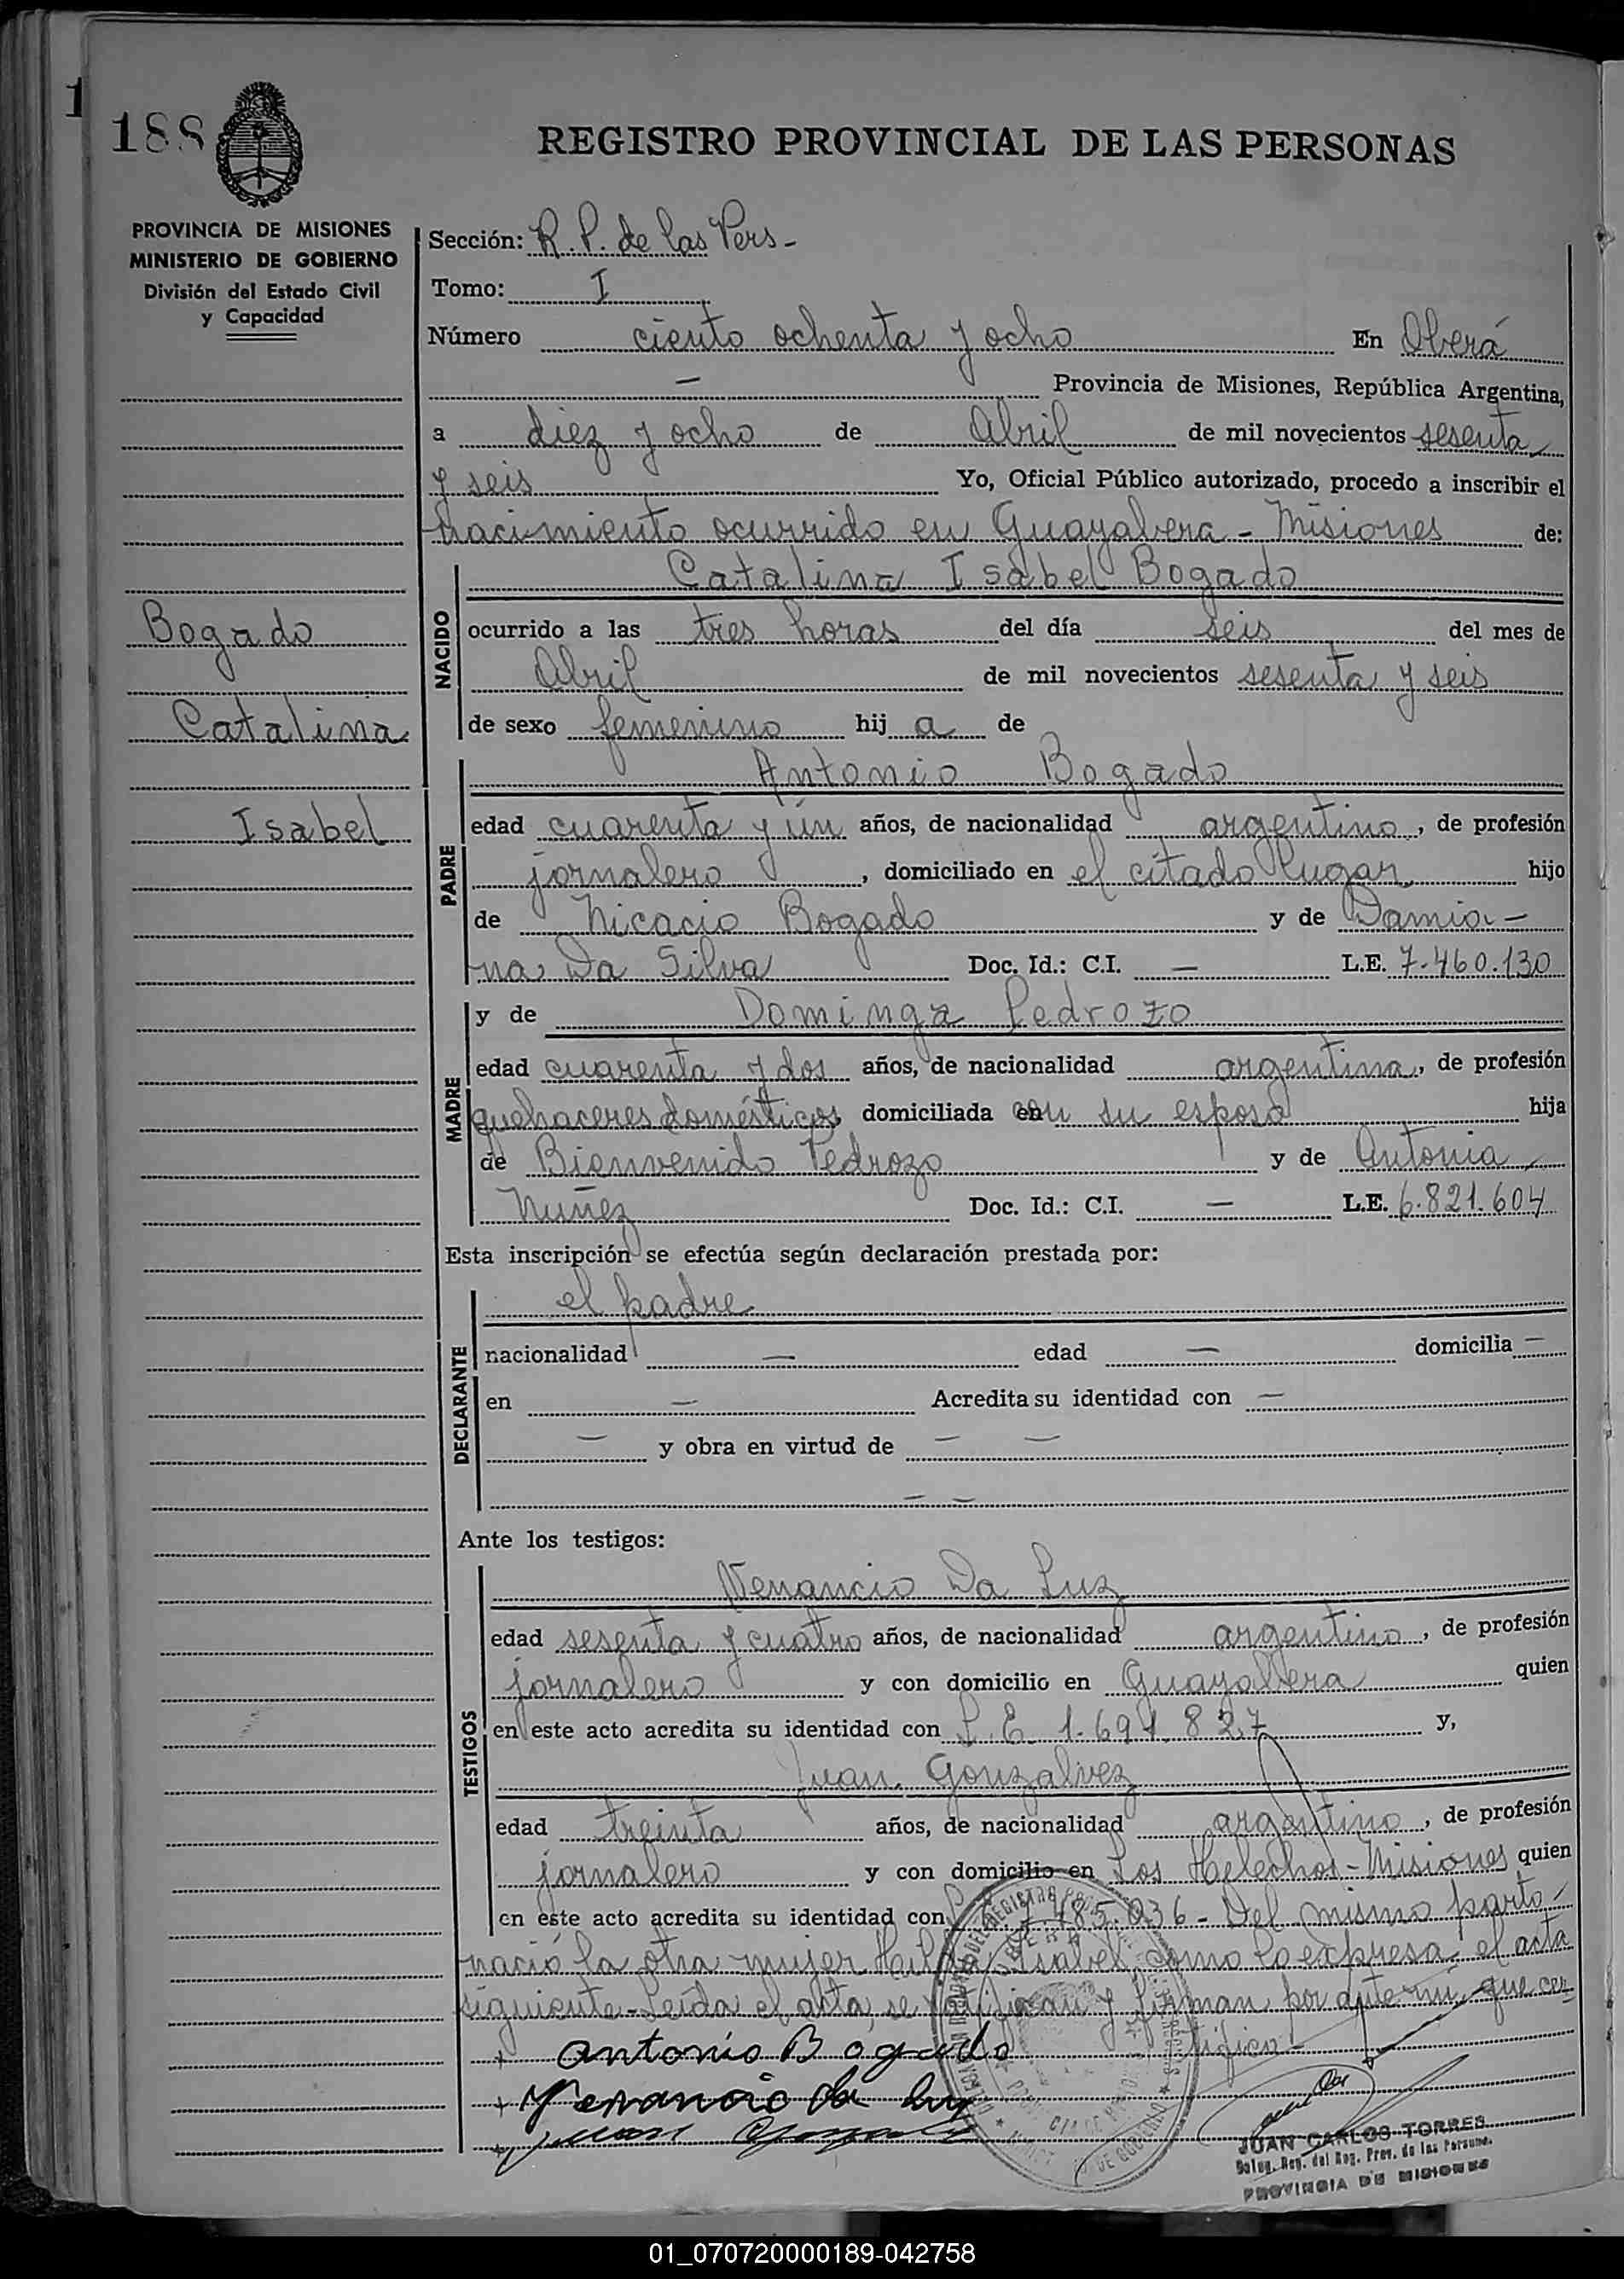 1
188
REGISTRO PROVINCIAL DE LAS PERSONAS
PROVINCIA DE MISIONES
MINISTERIO DE GOBIERNO
División del Estado Civil
y Capacidad
Bogado
Catalina
Isabel
Sección: R. P. de las Pers-
Tomo: I
Número ciento ochenta y ocho En Oberá
— Provincia de Misiones, República Argentina,
a diez y ocho de Abril de mil novecientos sesenta
y seis Yo, Oficial Público autorizado, procedo a inscribir el
nacimiento ocurrido en Guayabera - Misiones de:
NACIDO
Catalina Isabel Bogado
ocurrido a las tres horas del día seis del mes de
Abril de mil novecientos sesenta y seis
de sexo femenino hij a de
PADRE
Antonio Bogado
edad cuarenta y ún años, de nacionalidad argentino, de profesión
jornalero, domiciliado en el citado lugar hijo
de Nicacio Bogado y de Damia-
na Da Silva Doc. Id.: C.I. — L.E. 7.460.130
MADRE
y de Dominga Pedrozo
edad cuarenta y dos años, de nacionalidad argentina, de profesión
quehaceres domésticos domiciliada en con su esposo hija
de Bienvenido Pedrozo y de Antonia
Nuñez Doc. Id.: C.I. — L.E. 6.821.604
Esta inscripción se efectúa según declaración prestada por:
DECLARANTE
el padre
nacionalidad — edad — domicilia —
en — Acredita su identidad con —
— y obra en virtud de — —
— —
Ante los testigos:
TESTIGOS
Venancio Da Luz
edad sesenta y cuatro años, de nacionalidad argentino, de profesión
jornalero y con domicilio en Guayabera quien
en este acto acredita su identidad con L.E. 1.691.827 y,
Juan Gonzalvez
edad treinta años, de nacionalidad argentino, de profesión
jornalero y con domicilio en Los Helechos - Misiones quien
en este acto acredita su identidad con 485.036 - Del mismo parto
nació la otra mujer Isabel como lo expresa el acta
siguiente - Leída el acta, se ratifican y firman por ante mí, que cer-
tifico -
Antonio Bogado
Venancio da luz
JUAN CARLOS TORRES
Deleg. Reg. del Reg. Prov. de las Personas
PROVINCIA DE MISIONES
01_070720000189-042758